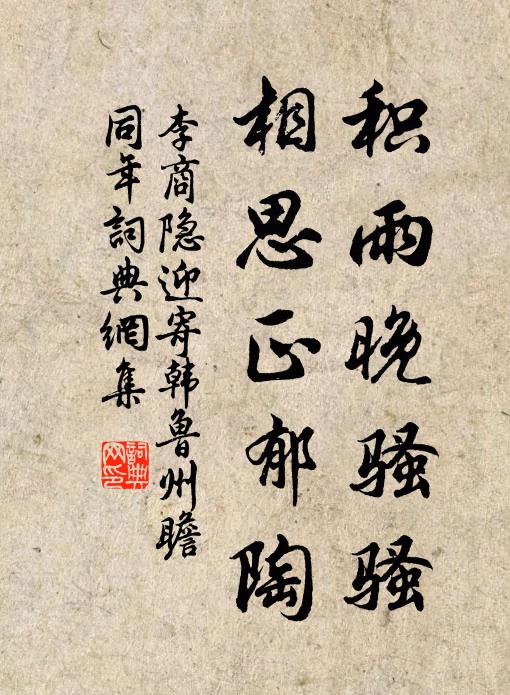 积雨晚骚骚
相思正郁陶
李商隐迎寄韩鲁州瞻
同年詞典網集
詞典网印